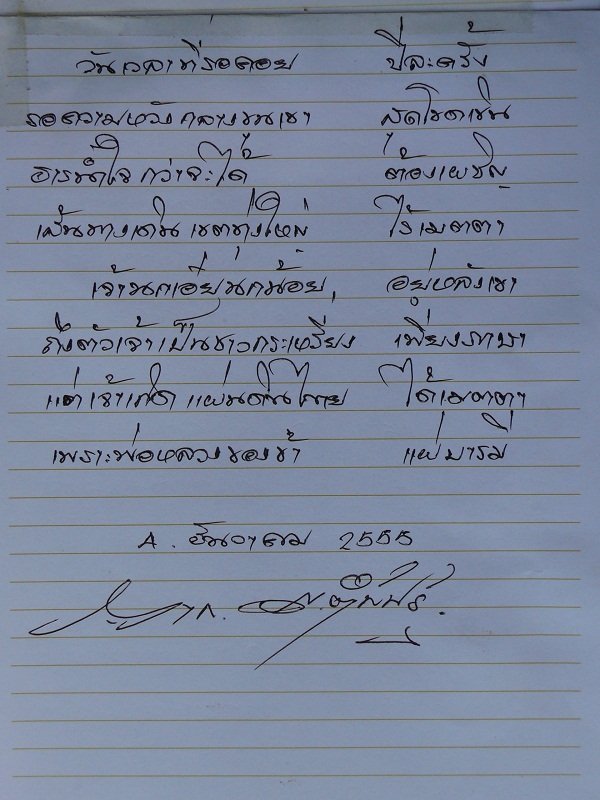 วันเวลาที่รอคอย ปีละครั้ง
รอความหวัง กลางขุนเขา สุดโขดเขิน
ธารน้ำใจ กว่าจะได้ ต้องเผชิญ
เส้นทางเดิน เขตทุ่งใหญ่ ไร้เมตตา
เจ้านกเอี้ยง นกน้อย, อยู่หลังเขา
ถึงตัวเจ้า เป็นชาวกระเหรี่ยง เพี้ยงภาษา
แต่เจ้าเกิด แผ่นดินไทย ได้เมตตา
เพราะพ่อหลวงของข้า แผ่บารมี
4. ธันวาคม 2555